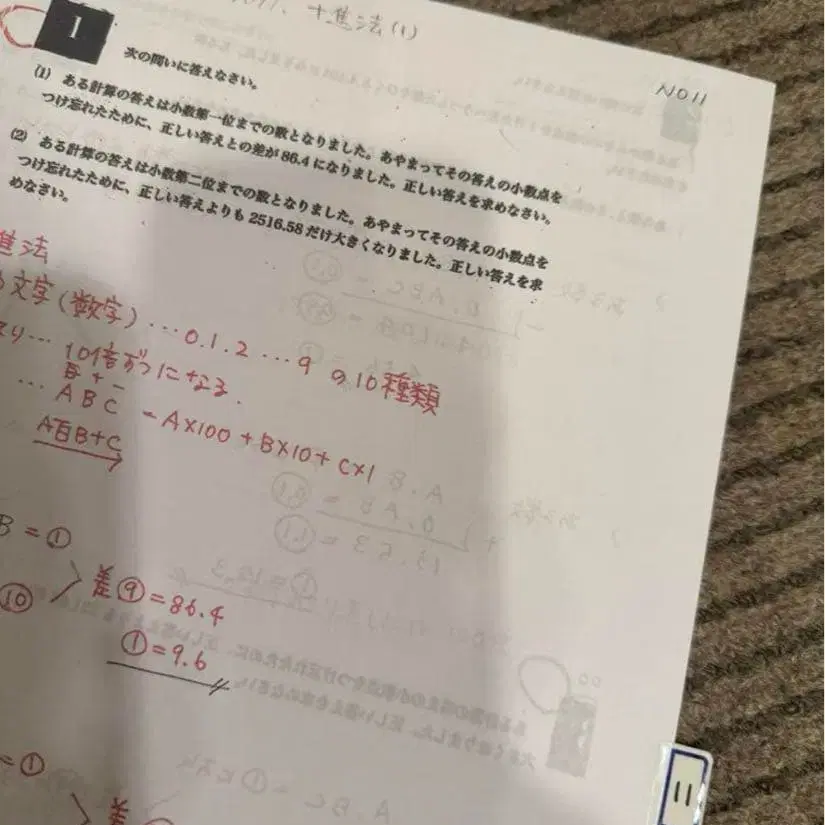 十進法(1)
NO11
1
次の問いに答えなさい。
(1) ある計算の答えは小数第一位までの数となりました。あやまってその答えの小数点を
つけ忘れたために、正しい答えとの差が86.4になりました。正しい答えを求めなさい。
(2) ある計算の答えは小数第二位までの数となりました。あやまってその答えの小数点を
つけ忘れたために、正しい答えよりも2516.58だけ大きくなりました。正しい答えを求
めなさい。
進法
文字(数字)…0.1.2…9の10種類
…10倍ずつになる.
百十一
…ABC=A×100+B×10+C×1
A百B+C
B=①
⑩
差⑨=86.4
①=9.6
=①
差
11